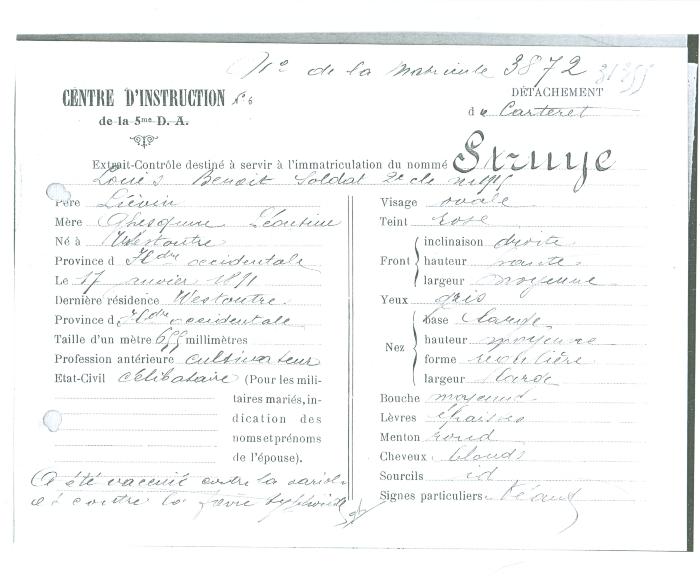 No de la Matricule 3872
CENTRE D'INSTRUCTION No 6
DÉTACHEMENT
de la 5me D. A.
de Carteret
Extrait-Contrôle destiné à servir à l'immatriculation du nommé Struye
Louis Benoit Soldat 2e cl
Père Liévin
Mère Léontine
Né à Westoutre
Province d Fldre occidentale
Le 17 janvier 1891
Dernière résidence Westoutre.
Province d Fldre occidentale
Taille d'un mètre 655 millimètres
Profession antérieure cultivateur
Etat-Civil célibataire (Pour les mili-
taires mariés, in-
dication des
noms et prénoms
de l'épouse).
A été vacciné contre la variole
et contre la fièvre typhoïde
Visage ovale
Teint rose
Front inclinaison droite
hauteur
largeur moyenne
Yeux gris
Nez base large
hauteur moyenne
forme
largeur large
Bouche moyenne
Lèvres épaisses
Menton rond
Cheveux blonds
Sourcils id
Signes particuliers: Néant